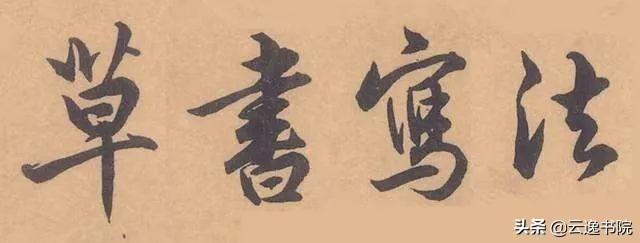 草書寫法
头条 @云逸书院